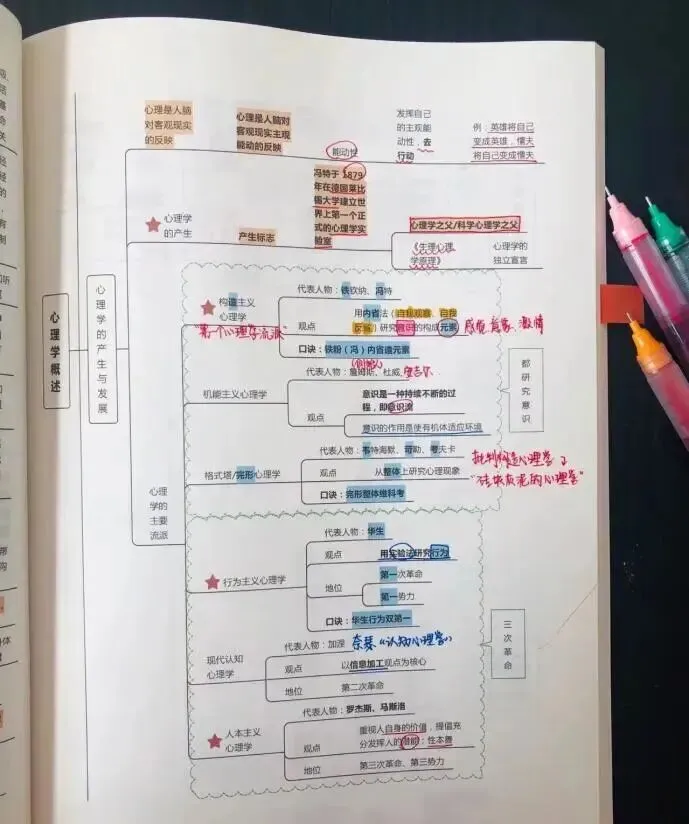 心理是人脑
对客观现实
的反映
心理是人脑对
客观现实主观
能动的反映
能动性
发挥自己
的主观能
动性，去
行动
例：英雄将自己
变成英雄，懦夫
将自己变成懦夫
心理学
的产生
产生标志
冯特于1879
年在德国莱比
锡大学建立世
界上第一个正
式的心理学实
验室
心理学之父/科学心理学之父
《生理心理
学原理》
心理学的
独立宣言
心理学概述
心理学的产生与发展
心理
学的
主要
流派
构造主义
心理学
"第一个心理学流派"
代表人物：铁钦纳、冯特
观点
用内省法（自我观察、自我
反省）研究意识的构成元素
感觉、意象、激情
口诀：铁粉（冯）内省造元素
机能主义心理学
(创始人)
代表人物：詹姆斯、杜威、安吉尔
观点
意识是一种持续不断的过
程，即意识流
意识的作用是使有机体适应环境
格式塔/完形心理学
代表人物：韦特海默、苛勒、考夫卡
观点
从整体上研究心理现象
口诀：完形整体维科考
批判构造心理学是
"砖块和灰泥的心理学"
都研究意识
行为主义心理学
代表人物：华生
观点
用实验法研究行为
地位
第一次革命
第一势力
口诀：华生行为双第一
现代认知
心理学
代表人物：加涅
奈瑟《认知心理学》
观点
以信息加工观点为核心
地位
第二次革命
人本主义
心理学
代表人物：罗杰斯、马斯洛
观点
重视人自身的价值，提倡充
分发挥人的潜能；性本善
地位
第三次革命、第三势力
三次革命